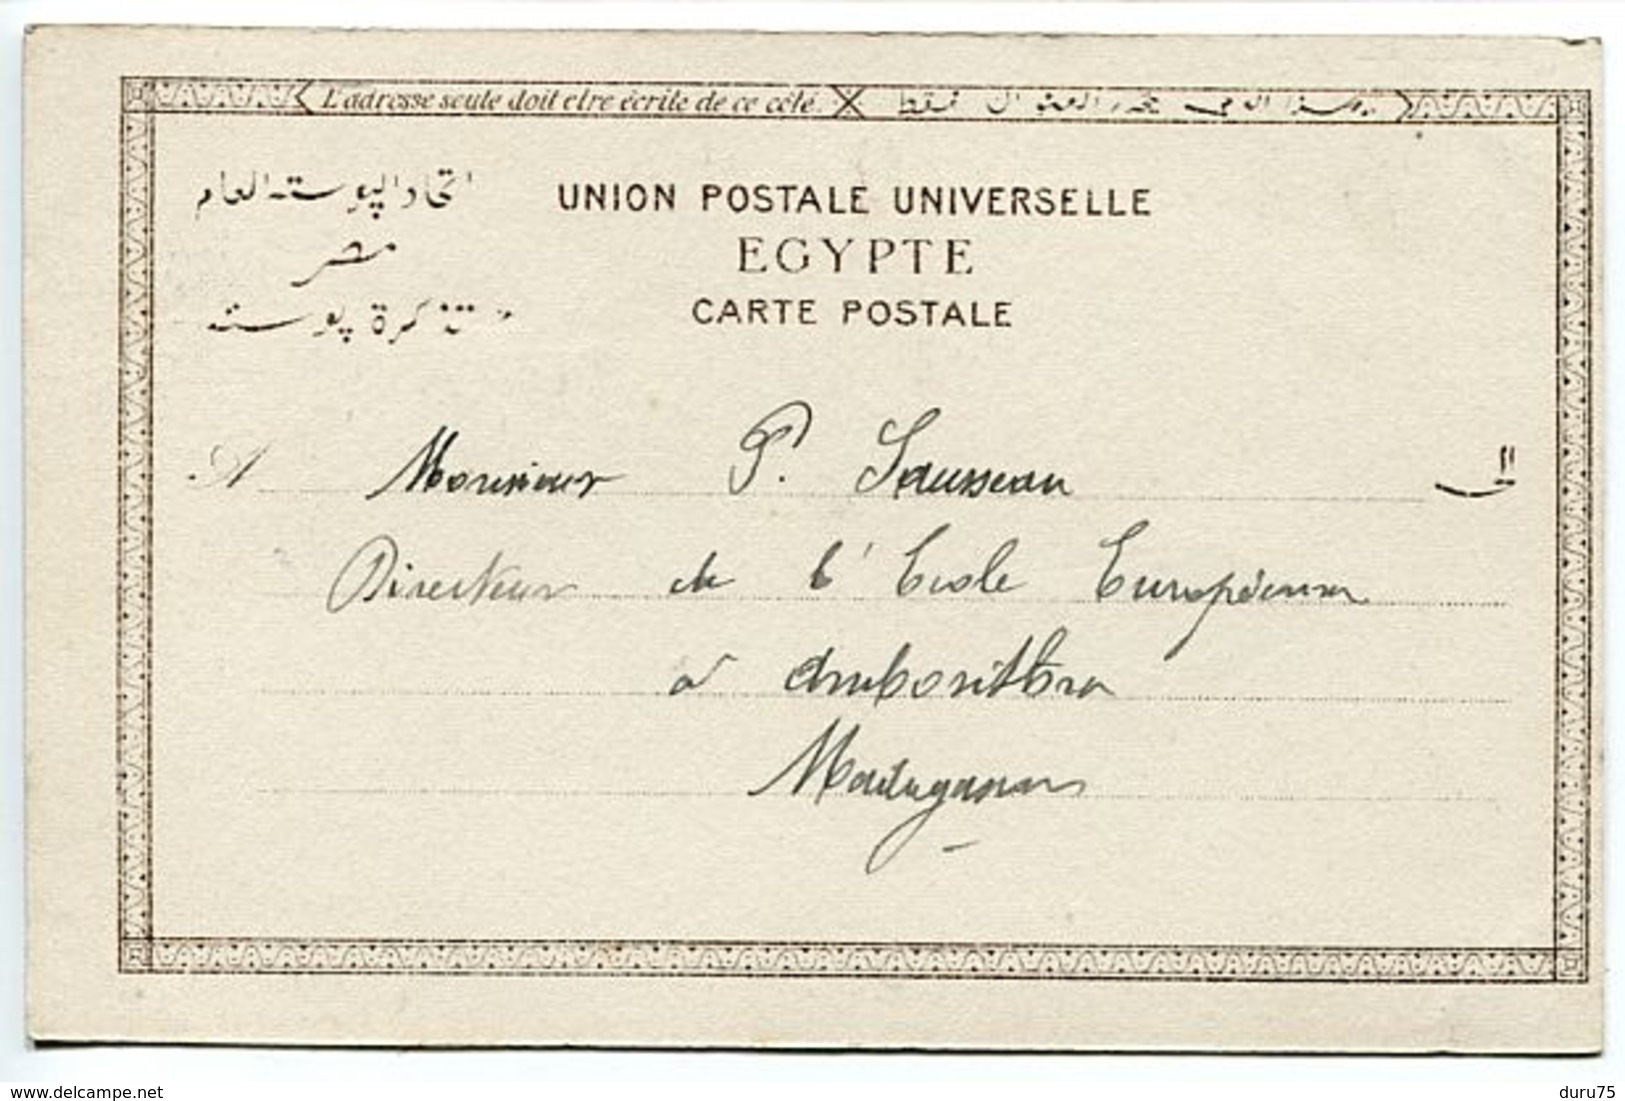 L'adresse seule doit etre écrite de ce côté.
اتحاد البوستة العام
UNION POSTALE UNIVERSELLE
مصر
EGYPTE
تذكرة بوستة
CARTE POSTALE
A Monsieur P. Sausseau الى
Directeur de l'Ecole Européenne
à Ambositra
Madagascar
delcampe.net
duru75